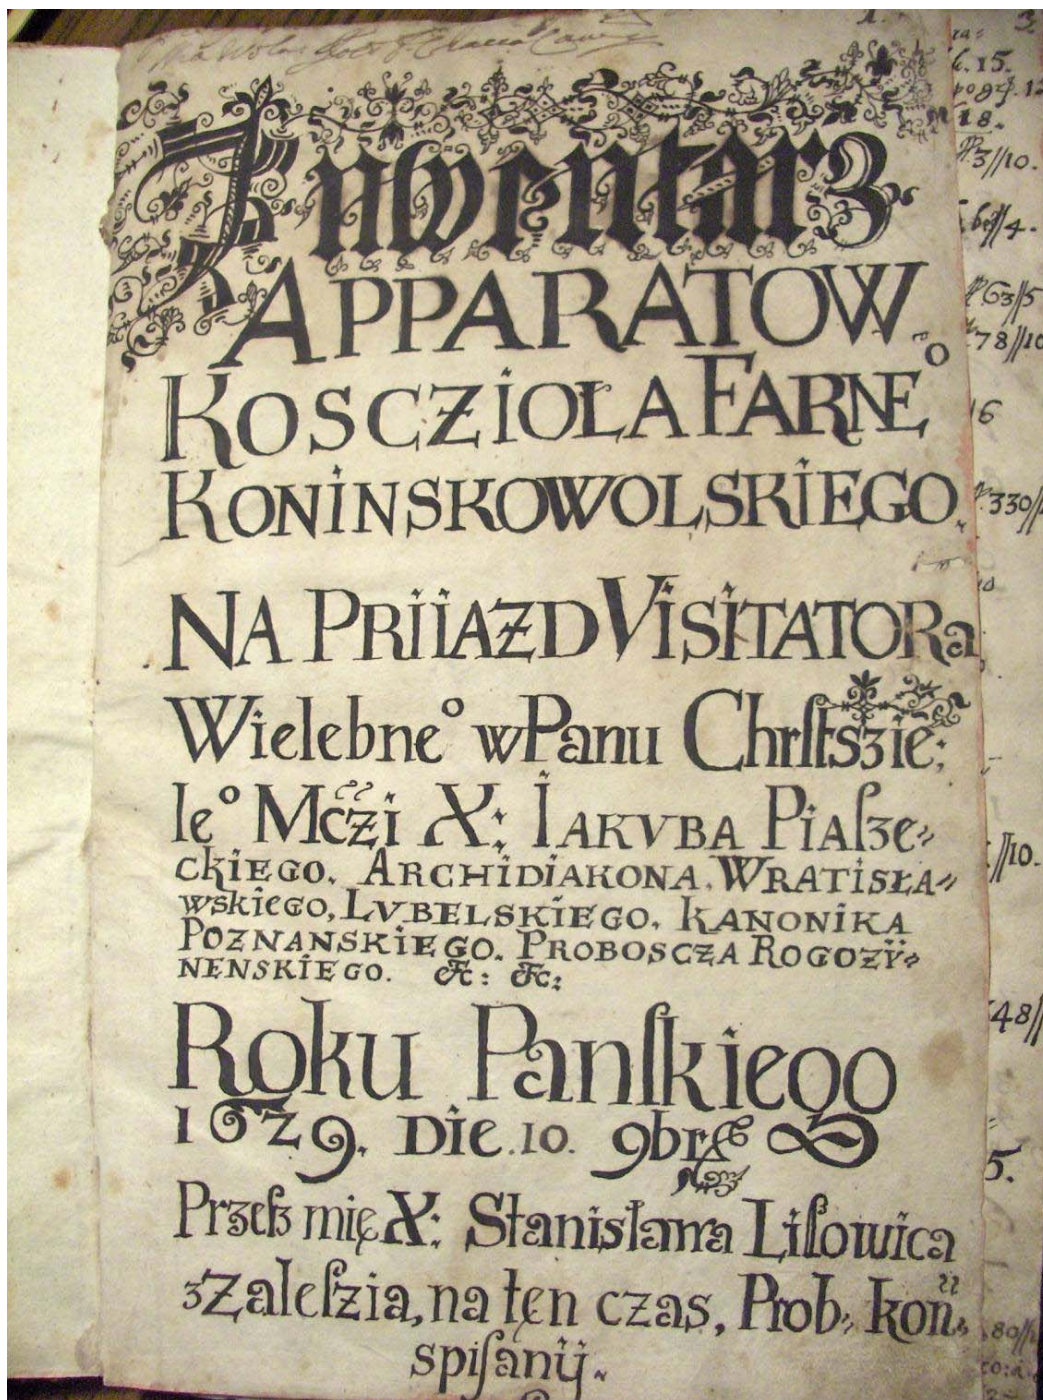 1. 3.
Inwentarz
APPARATOW
KOSCZIOŁA FARNEº
KONINSKOWOLSKIEGO.
NA PRIIAZD VISITATORa
Wielebneº w Panu Chrſtszie:
leº Mczi X: IAKVBA PIAſze-
CKIEGO. ARCHIDIAKONA. WRATISŁA-
WSKIEGO, LVBELSKIEGO. KANONIKA
POZNANSKIEGO. PROBOSCZA ROGOZY-
NENSKIEGO. &c: &c:
Roku Panſkiego
1629. Die. 10. 9br
Przeſz mię X: Stanisława Liſowica
z Zaleſzia, na ten czas, Prob: koń.
spiſanÿ.
6.15.
18.
3//10.
63//5
78//10
16
330//
//10.
48//
5.
80//